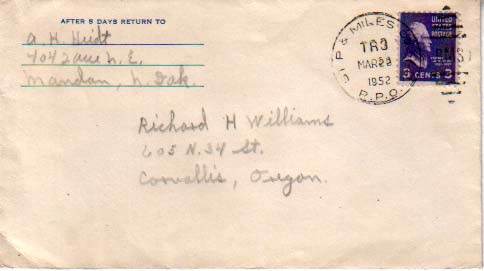 AFTER 5 DAYS RETURN TO
A. H. Heidt
404 2 ave N. E.
Mandan, N. Dak.
& MILES
TR 3
MAR 28
1952
R.P.O.
UNITED STATES
POSTAGE
3 CENTS 3
Richard H Williams
605 N. 34 St.
Corvallis, Oregon.